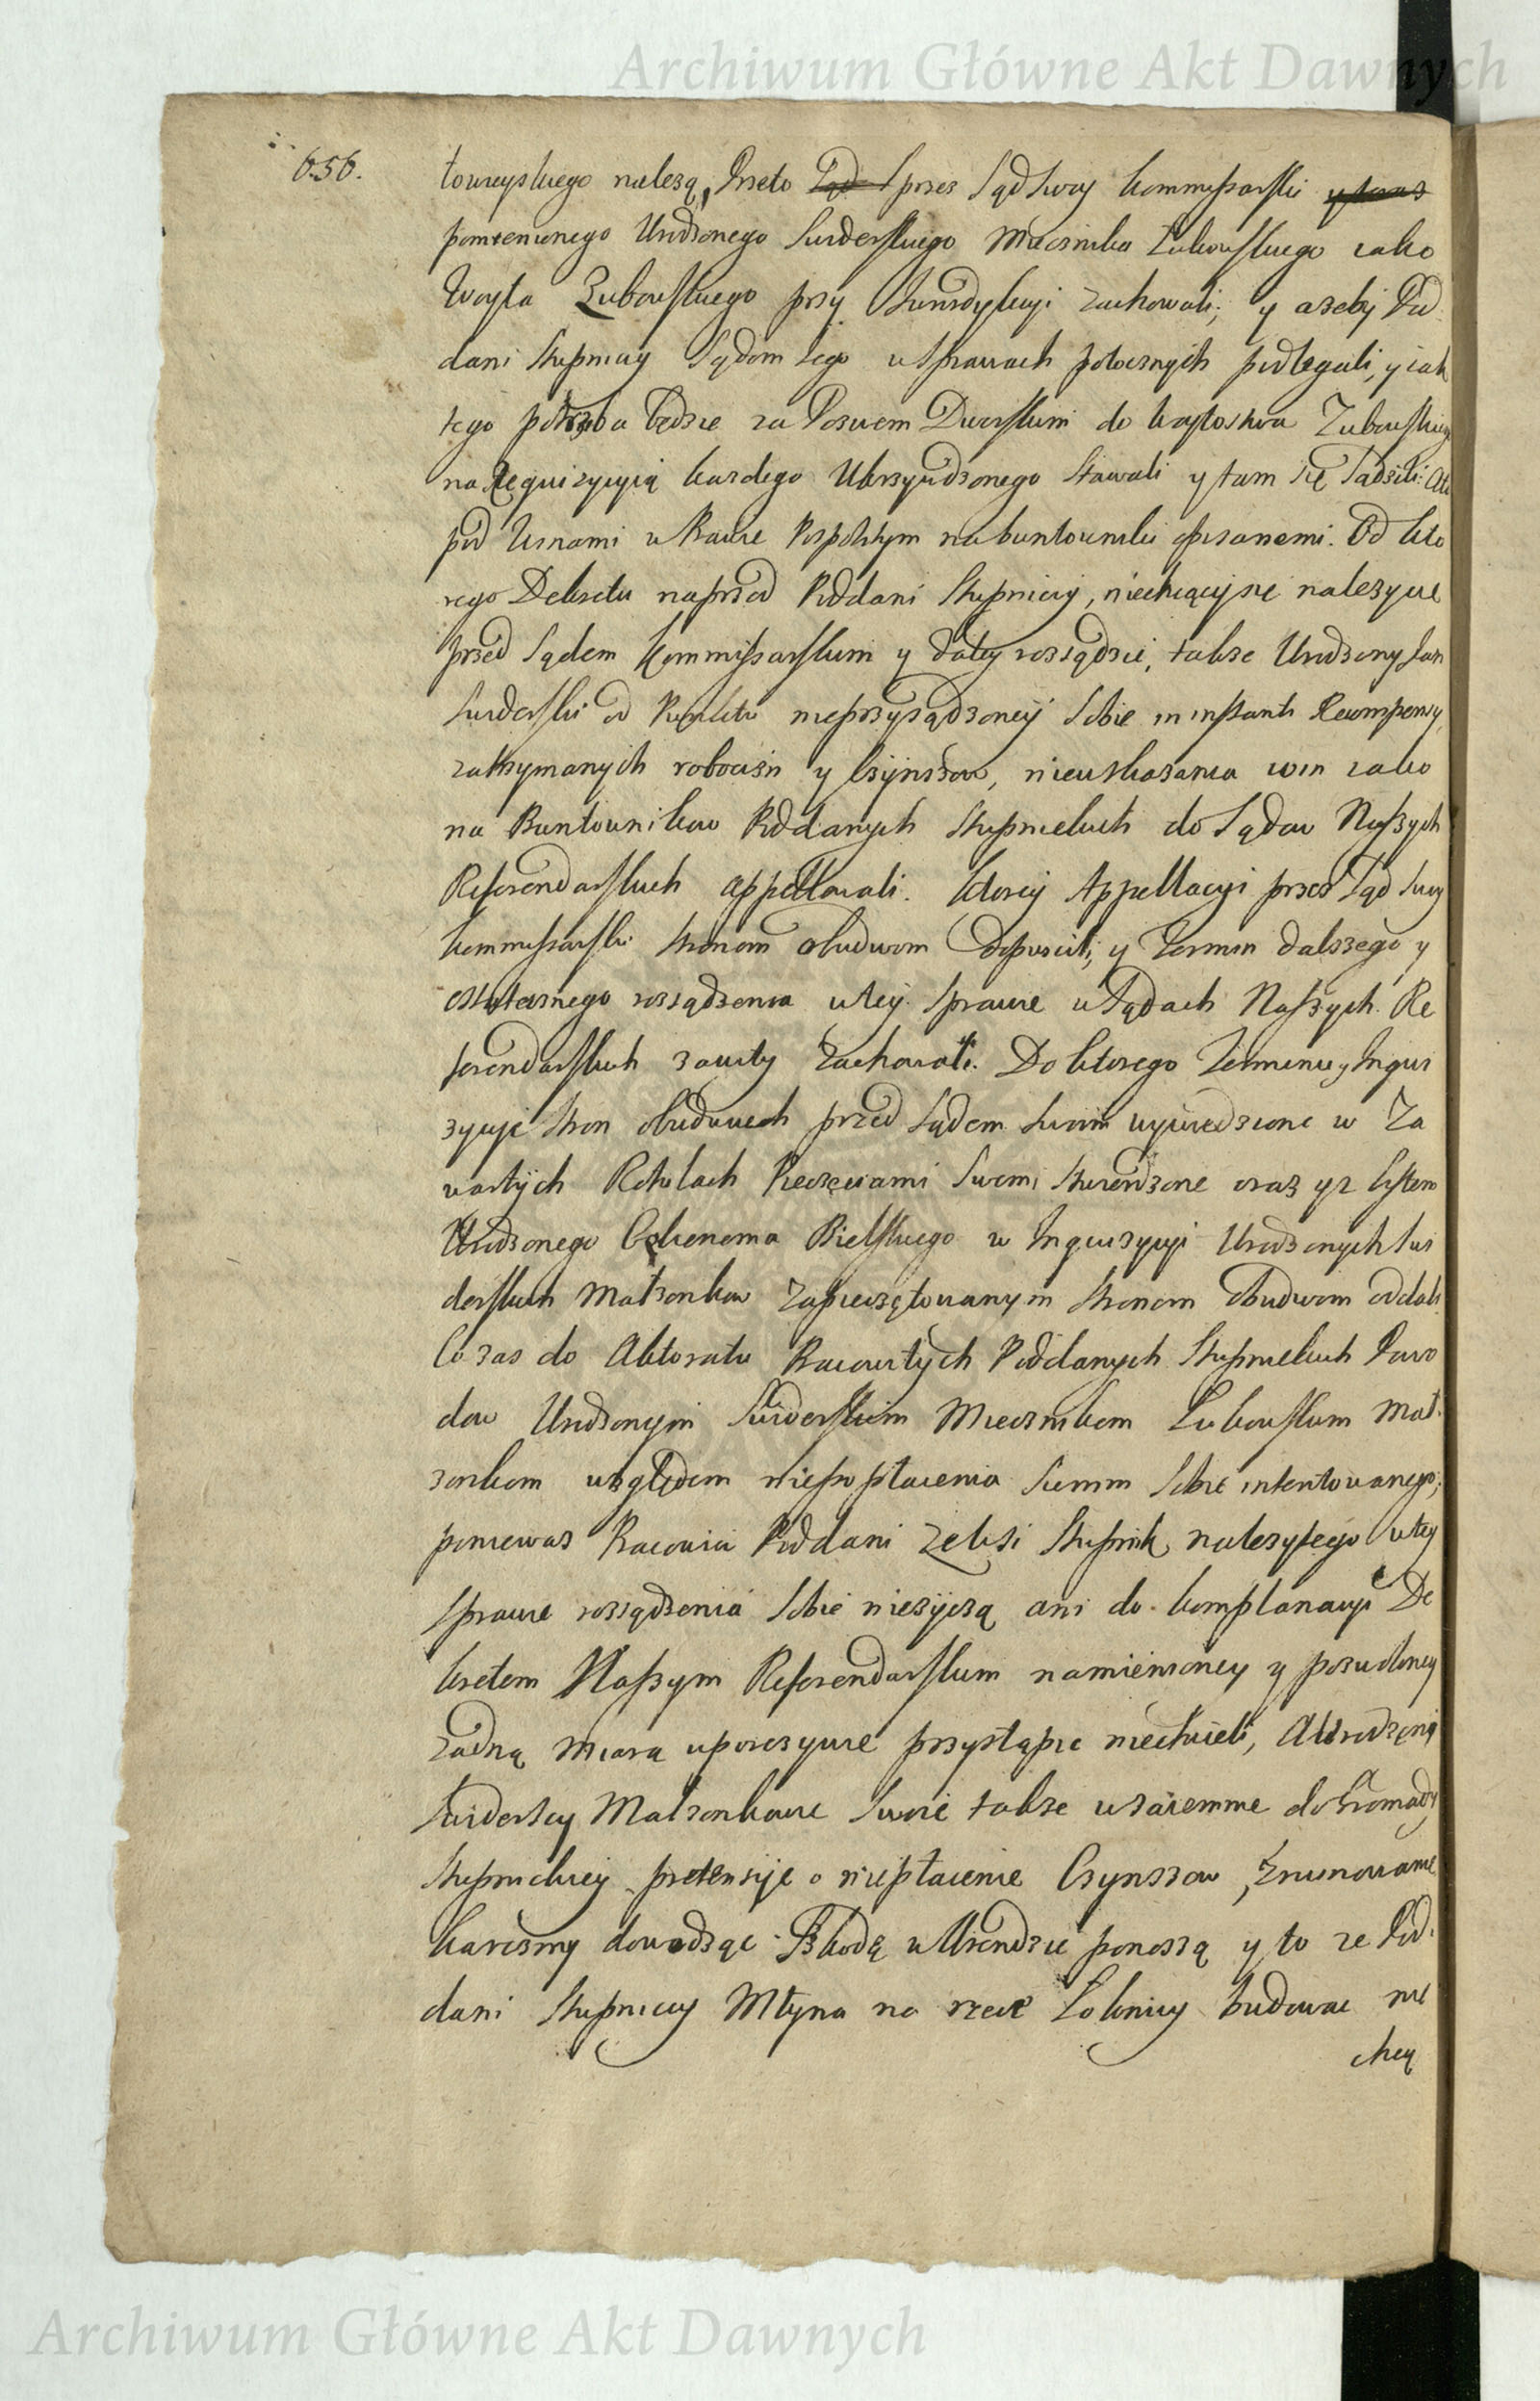 Archiwum Główne Akt Dawnych
656.
towreyskiego nalezą, Przeto Sąd przez Sąd Swoy Kommissarski
pomienionego Urodzonego Swiderskiego Miecznika Łukowskiego iako
Woyta Zubowskiego przy Jurisdykcyi zachowali; y azeby Pod
dani Stupniccy Sądom Iego w Sprawach potocznych podlegali, y iak
tego potrzeba będzie za Pozwem Dworskim do Woytostwa Zubowskiego
na Requizycyią kazdego Ukrzywdzonego Stawali y tam się Sądzili
pod Winami w Prawie Pospolitym na buntowniki opisanemi. Od kto
rego Dekretu naprzod Poddani Stupniccy, niechcący się nalezycie
przed Sądem Kommissarskim y daley rozsądzić, także Urodzony Jan
Swiderski od Punktu nieprzysądzoney Sobie in instanti Rekompensy
zatrzymanych robocizn y Czynszow, nieuskazania win iako
na Buntownikow Poddanych Stupnickich do Sądow Naszych
Referendarskich appellowali. Ktorey Appellacyi przez Sąd Swoy
Kommissarski Stronom obudwom dopuscili; y Termin dalszego y
ostatecznego rozsądzenia w tey Sprawie w Sądach Naszych Re
ferendarskich zawity zachowali. Do ktorego Terminu y Inqui
zycye Stron obudwuch przed Sądem Swoim wywiedzione w Za
wartych Rotulach Pieczęciami Swemi stwierdzone oraz y z Listem
Urodzonego Bielskiego w Inquizycyi Urodzonych Swi
derskich Małzonkow Zapieczętowanym Stronom Obudwom oddali
Co zas do Aktoratu Pracowitych Poddanych Stupnickich Powo
dow Urodzonym Swiderskim Miecznikom Łukowskim Mał
zonkom względem niepopłacenia Summ Sobie intentowanego;
poniewaz Pracowici Poddani ze Wsi Stupnik nalezytego w tey
Sprawie rozsądzenia Sobie nie zyczą ani do komplanacyi De
kretem Naszym Referendarskim namienioney y pozwoloney
zadną miarą uporczywie przystąpić niechcieli, A Urodzeni
Swiderscy Małzonkowie Swoie także wzaiemnie do Gromady
Stupnickiey pretensyje o niepłacenie Czynszow, Zruinowanie
karczmy dowodząc Szkodę w Arendzie ponoszą y to ze Pod
dani Stupniccy Młyna na rzece budować nie
chcą
Archiwum Główne Akt Dawnych